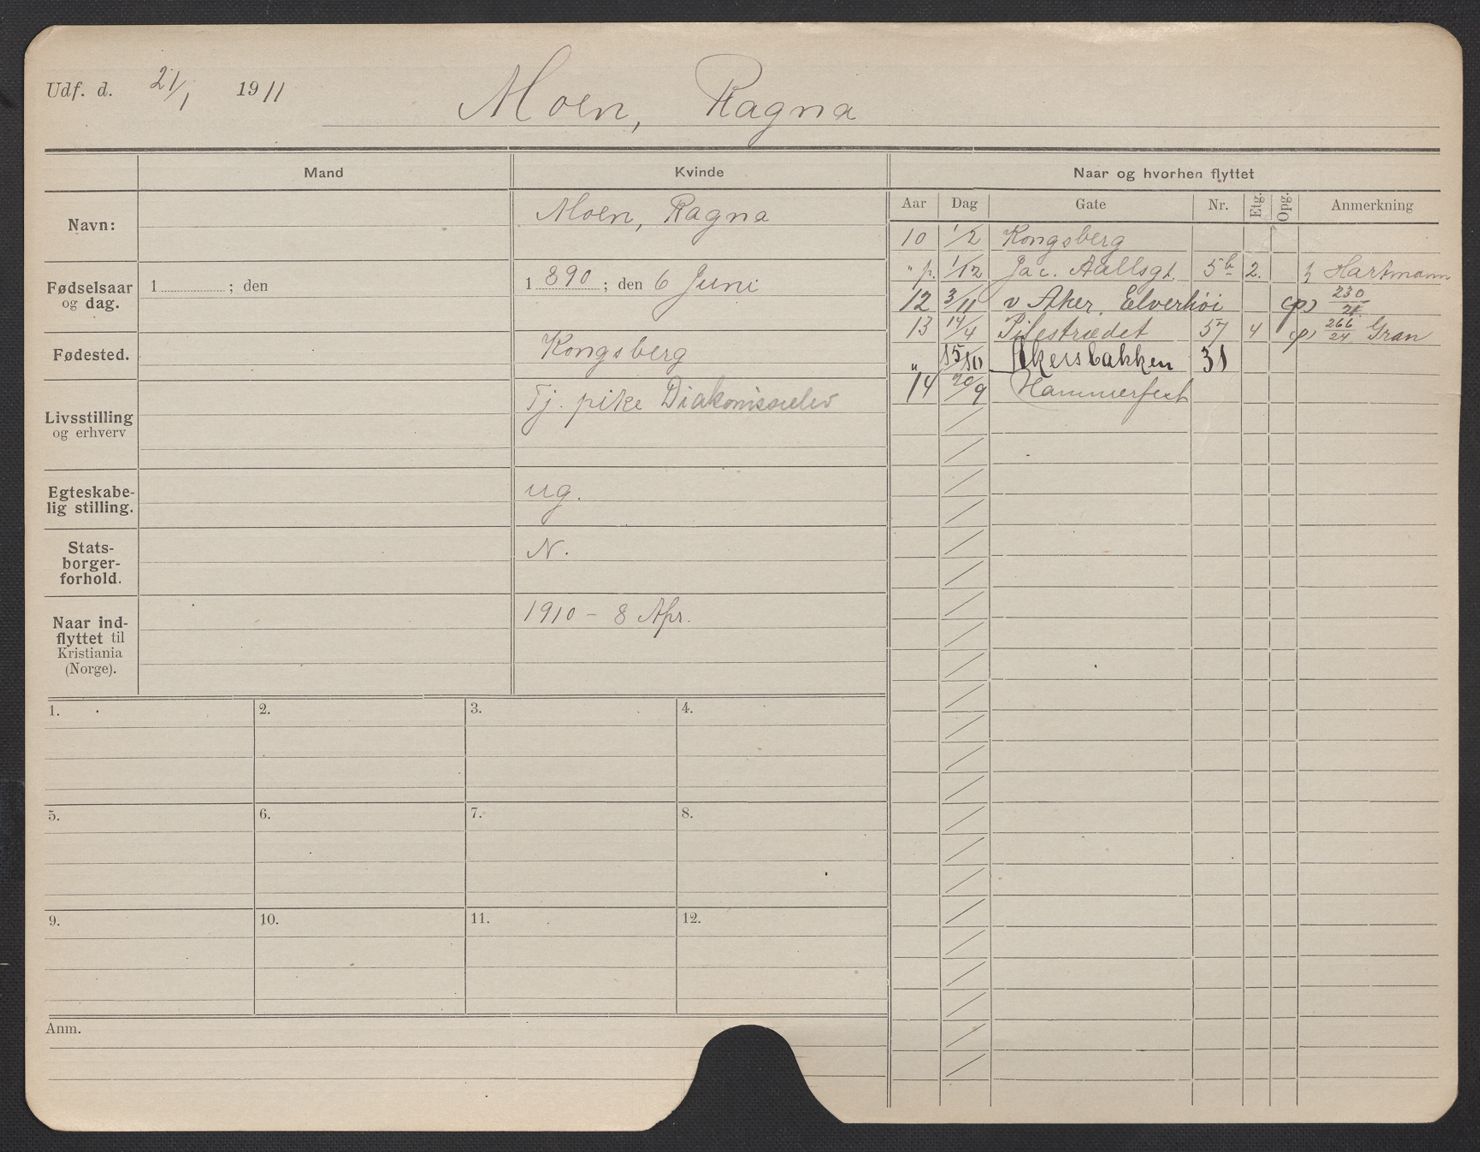 Udf. d. 21/1 1911 Moen, Ragna
Mand Kvinde Naar og hvorhen flyttet
Navn: Moen, Ragna
Fødselsaar og dag. 1 ; den 1 890 ; den 6 Juni
Fødested. Kongsberg
Livsstilling og erhverv Tj. pike Diakonisseelev
Egteskabe-
lig stilling. ug.
Stats-
borger-
forhold. N.
Naar ind-
flyttet til
Kristiania
(Norge). 1910 - 8 Apr.
Aar Dag Gate Nr. Etg. Opg. Anmerkning
10 1/2 Kongsberg
" p. 1/12 Jac. Aallsgt. 5b 2. Hartmann
12 3/11 v Aker, Elverhøi (p) 230/21
13 14/4 Pilestrædet 57 4 (p) 266/24 Gran
" 15/10 Akersbakken 31
14 20/9 Hammerfest
1. 2. 3. 4.
5. 6. 7. 8.
9. 10. 11. 12.
Anm.